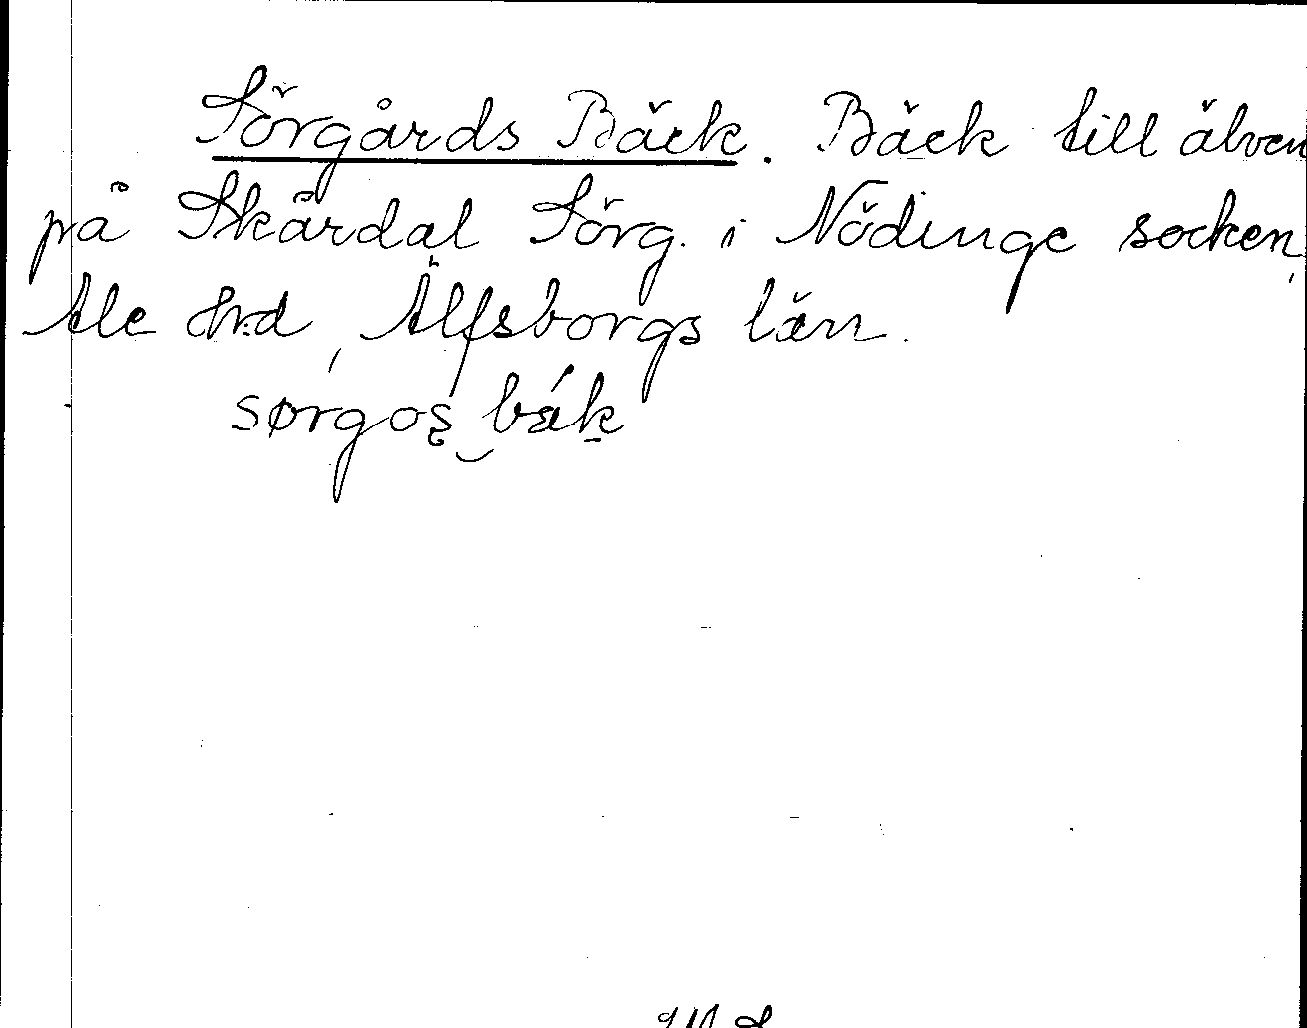 Sörgårds Bäck. Bäck till älven
på Skårdal Sörg. i Nödinge socken,
Ale hrd, Älfsborgs län.
sørgos bák